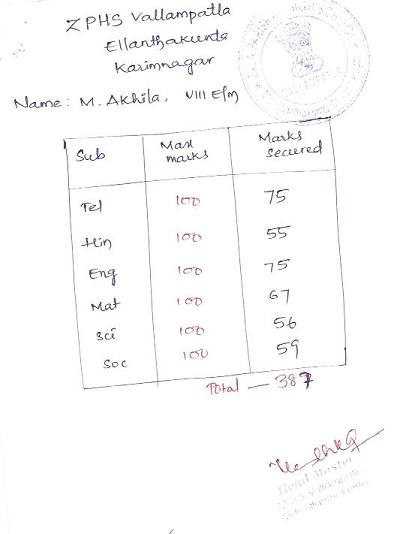 Z PHS Vallampatla
Ellanthakunta
Karimnagar
Name: M. Akhila, VIII E/m
Sub Max marks Marks Secured
Tel 100 75
Hin 100 55
Eng 100 75
Mat 100 67
Sci 100 56
Soc 100 59
Total — 387
Head Master